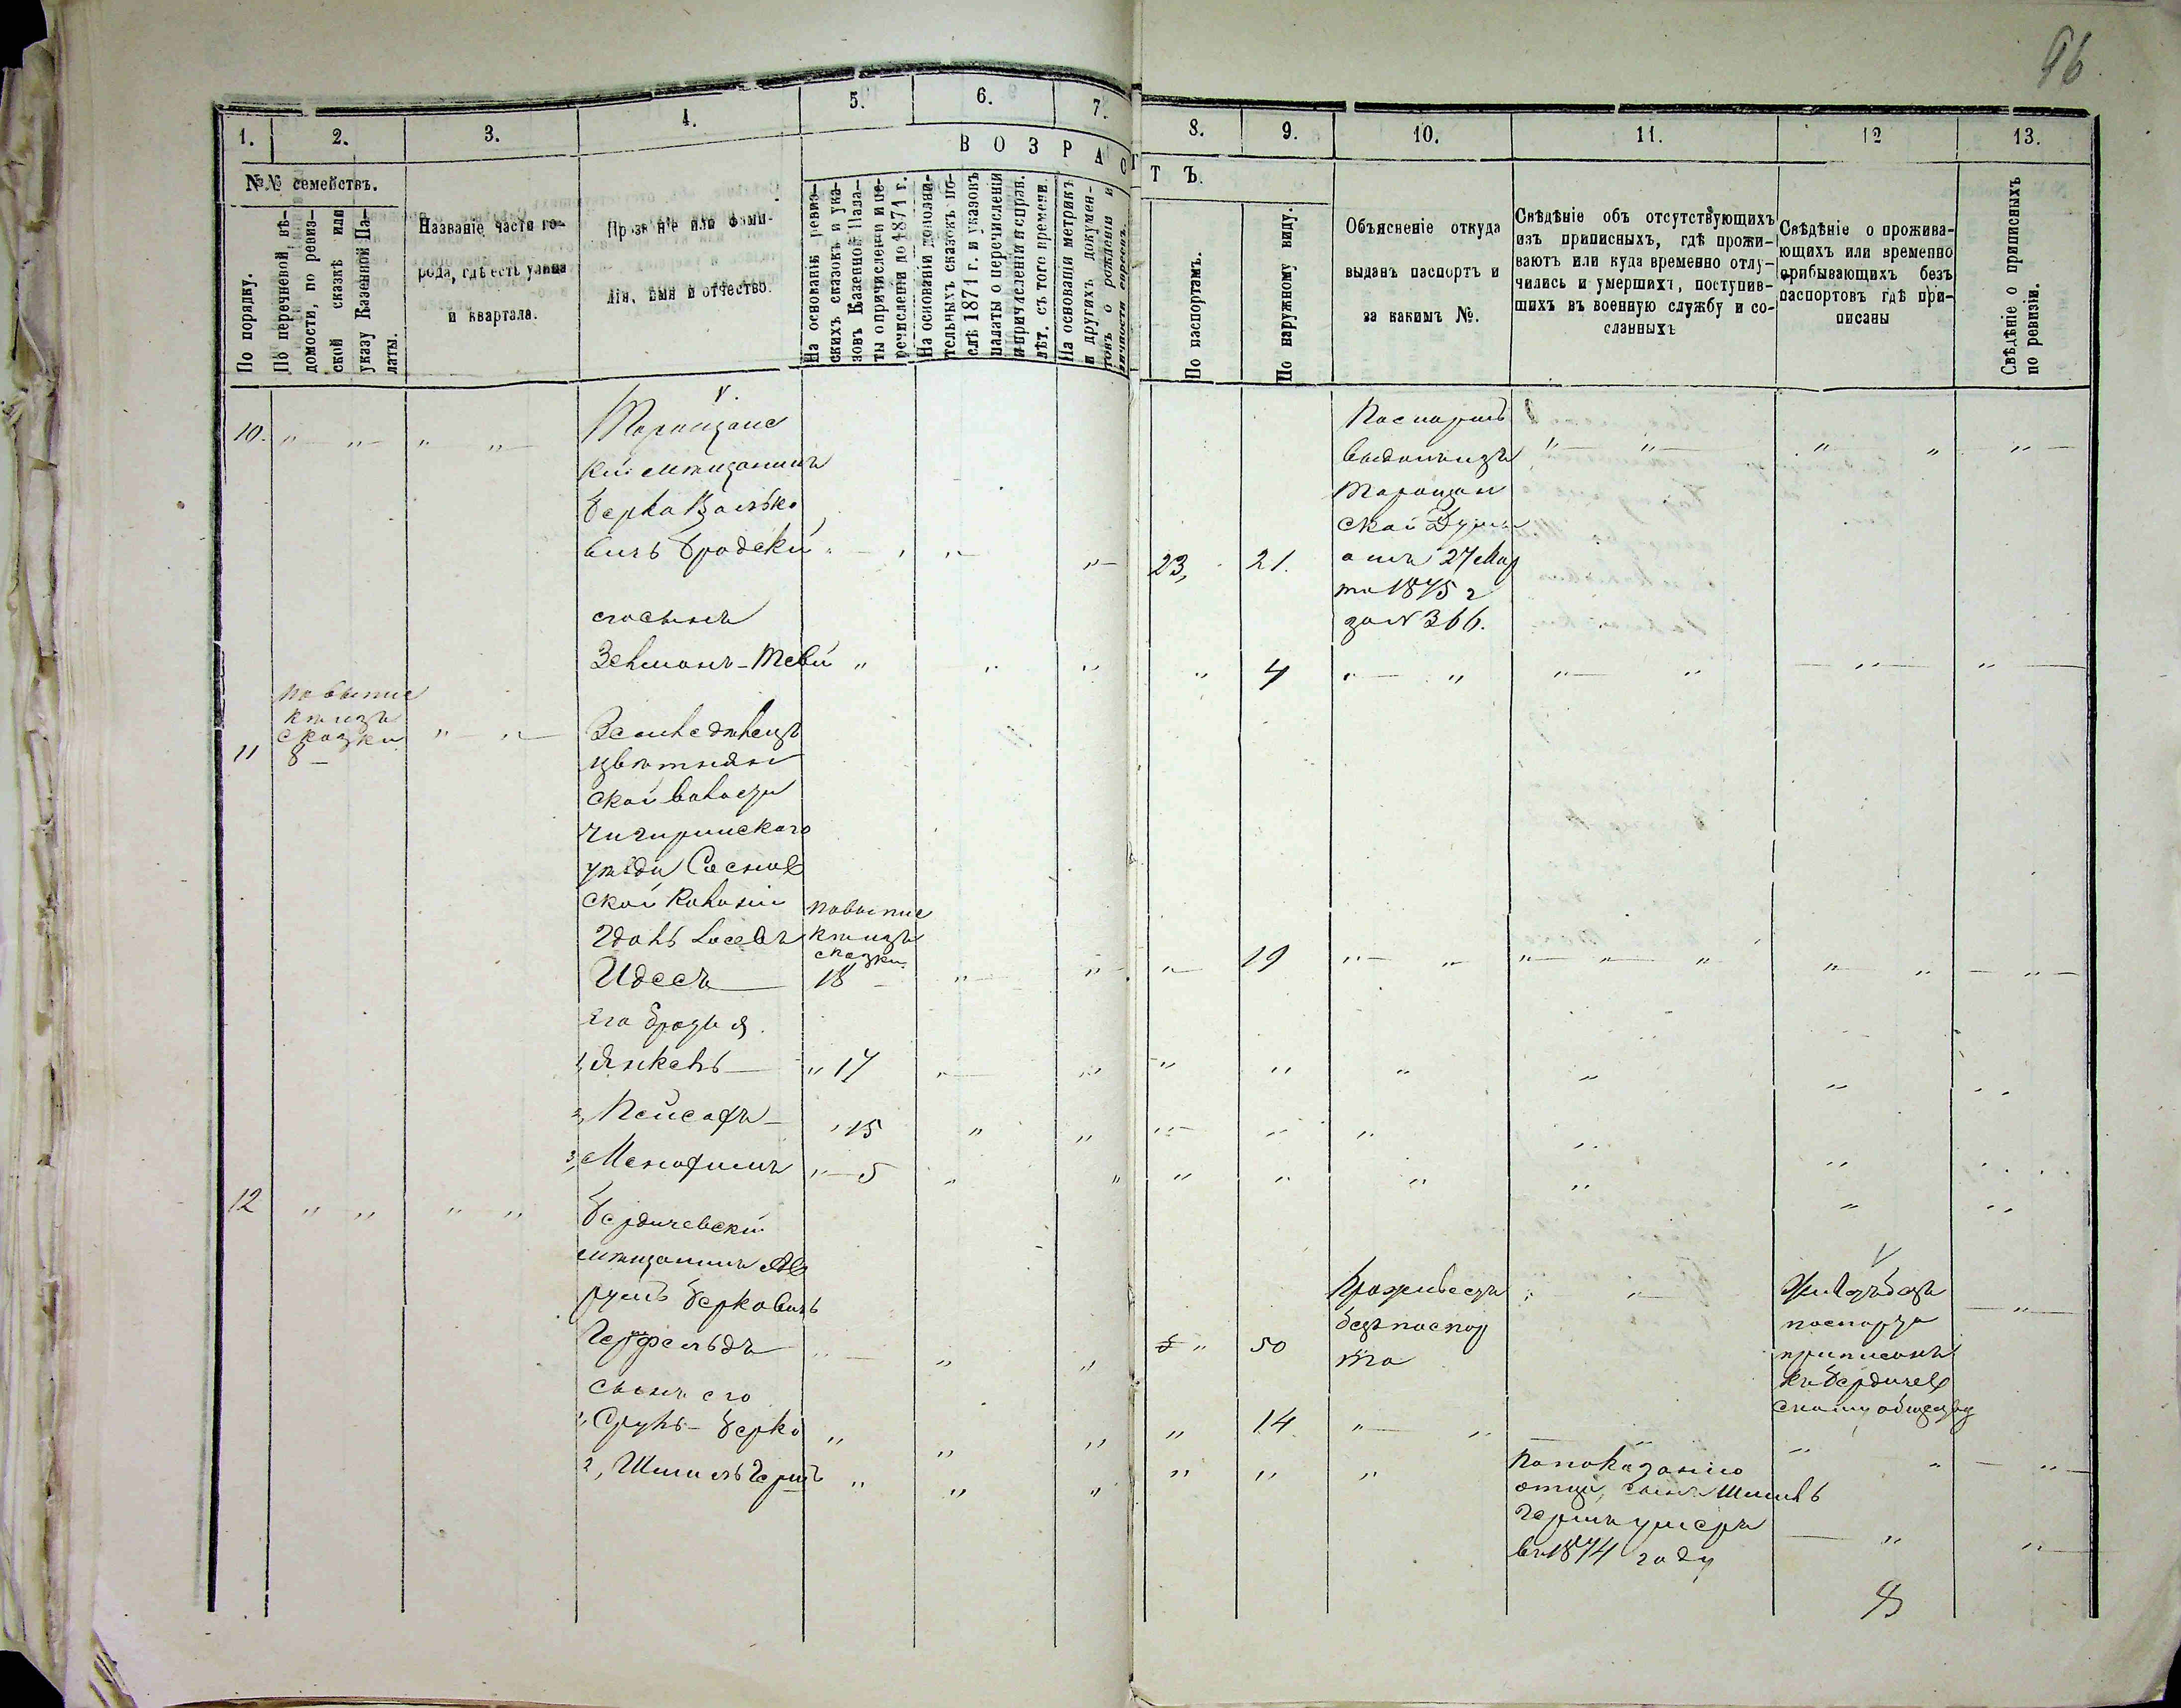 96
1. 2. 3. 4. 5. 6. 7. 8. 9. 10. 11. 12 13.
В О З Р А С Т Ъ.
№№ семействъ.
По порядку.
По перечневой вѣ-
домости, по ревиз-
ской сказкѣ или
указу Казенной Па-
латы.
Названіе части го-
рода, гдѣ есть улица
и квартала.
Прозваніе или фами-
лія, имя и отчество.
На основаніи ревиз-
скихъ сказокъ и ука-
зовъ Казенной Пала-
ты о причисленіи и пе-
речисленіи до 1871 г.
На основаніи дополни-
тельныхъ сказокъ по-
слѣ 1871 г. и указовъ
палаты о перечисленіи
и причисленіи исправ.
лѣт. съ того времени.
На основаніи метрикъ
и другихъ докумен-
товъ о рожденіи и
личности евреевъ.
По паспортамъ.
По наружному виду.
Объясненіе откуда
выданъ паспортъ и
за какимъ №.
Свѣдѣніе объ отсутствующихъ
изъ приписныхъ, гдѣ прожи-
ваютъ или куда временно отлу-
чились и умершихъ, поступив-
шихъ въ военную службу и со-
сланныхъ
Свѣдѣніе о прожива-
ющихъ или временно
прибывающихъ безъ
паспортовъ гдѣ при-
писаны
Свѣдѣніе о приписныхъ
по ревизіи.
10. „ „ „ „
Таращанс
кій мѣщанинъ
Берко Волько
вичъ Бродскій
23, 21.
Паспортъ
выданъ изъ
Таращан
ской Думы
отъ 27 Мар
та 1875 г
за № 366.
его сынъ
Зельманъ-Тевій „ „ „ „ 4 „ „
11
по выпис
кѣ изъ
сказки
8 –
Земледѣлецъ
Цвѣтнян
ской волости
Чигиринскаго
уѣзда Соснов
ской колоніи
Гдаль Іосевъ
Идесъ
по выпис
кѣ изъ
сказки
18 „ „ „ 19 „ „
его братья
1, Янкель „ 17
2, Пейсахъ „ 15
3, Менахимъ „ 5
12 „ „ „ „
Бердичевскій
мѣщанинъ Ав
румъ Берковичъ
Герфельдъ
„ „ „ „ 50
Проживаетъ
безъ паспор
та
Живетъ безъ
паспорта
приписанъ
къ Бердичев
скому обществу
сынъ его
1, Сруль-Берко „ „ „ „ 14 „ „
2, Шмиль Гершъ „ „ „ „ „ „
По показанію
отца, сынъ Шмиль
Гершъ умеръ
въ 1874 году